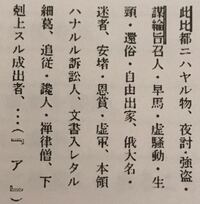 此比都ニハヤル物、夜討・強盗・
謀綸旨召人・早馬・虚騒動・生
頸・還俗・自由出家、俄大名・
迷者、安堵・恩賞・虚軍、本領
ハナルル訴訟人、文書入レタル
細葛、追従・讒人・禅律僧、下
剋上スル成出者、…(『ア』)